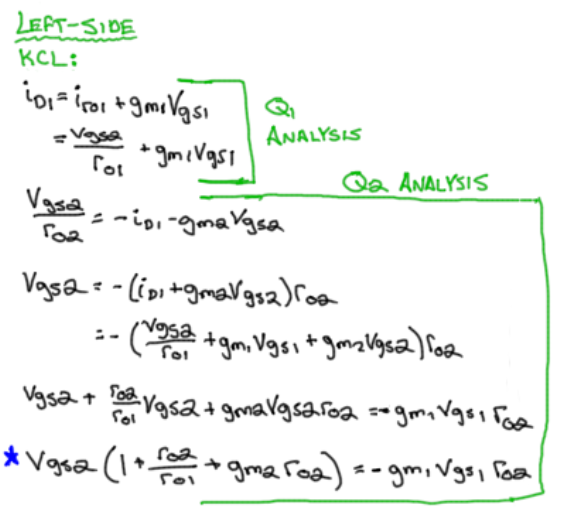 LEFT-SIDE
KCL:
i_D1 = i_ro1 + gm1Vgs1
= Vgs2/ro1 + gm1Vgs1
Q1
ANALYSIS
Q2 ANALYSIS
Vgs2/ro2 = -i_D1 - gm2Vgs2
Vgs2 = -(i_D1 + gm2Vgs2)ro2
= -(Vgs2/ro1 + gm1Vgs1 + gm2Vgs2)ro2
Vgs2 + ro2/ro1 Vgs2 + gm2Vgs2ro2 = -gm1Vgs1ro2
* Vgs2(1 + ro2/ro1 + gm2ro2) = -gm1Vgs1ro2